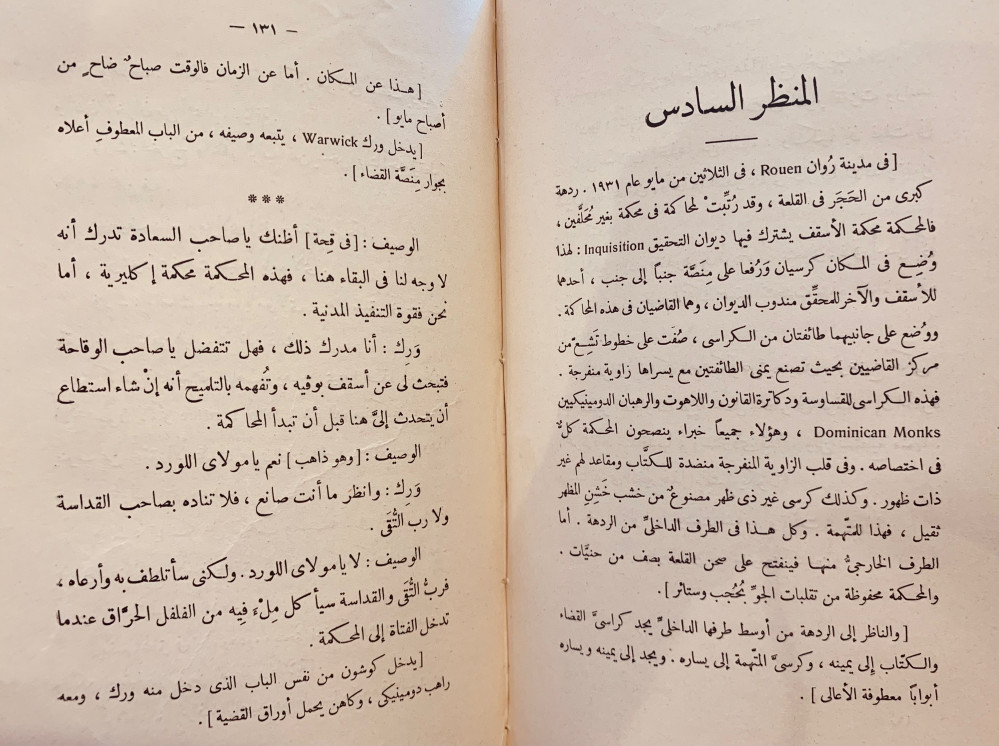 المنظر السادس
[ فى مدينة رُوان Rouen ، فى الثلاثين من مايو عام ١٩٣١ . ردهة
كبرى من الحَجَر فى القلعة ، وقد رُتِّبتْ لمحاكمة فى محكمة بغير مُحَلَّفين ،
فالمحكمة محكمة الأسقف يشترك فيها ديوان التحقيق Inquisition : لهذا
وُضِع فى المكان كرسيان وَرُفعا على مِنَصَّة جنبًا إلى جنب ، أحدهما
للأسقف والآخر للمحقِّق مندوب الديوان ، وهما القاضيان فى هذه المحاكمة .
ووُضع على جانبيهما طائفتان من الكراسى ، صُفَّت على خطوط تَشِعُّ من
مركز القاضيين بحيث تصنع يمنى الطائفتين مع يسراها زاوية منفرجة .
فهذه الكراسى للقساوسة ودكاترة القانون واللاهوت والرهبان الدومينيكيين
Dominican Monks ، وهؤلاء جميعاً خبراء ينصحون المحكمة كلٌّ
فى اختصاصه . وفى قلب الزاوية المنفرجة منضدة للكتَّاب ومقاعد لهم غير
ذات ظهور . وكذلك كرسى غير ذى ظهر مصنوعٌ من خشب خَشِنِ المظهر
ثقيل ، فهذا للمتَّهمة . وكل هذا فى الطرف الداخلىِّ من الردهة . أما
الطرف الخارجىُّ منها فينفتح على صحن القلعة بصف من حنيَّات .
والمحكمة محفوظة من تقلبات الجوِّ بحُجُب وستائر ] .
[ والناظر إلى الردهة من أوسط طرفها الداخلىِّ يجد كراسىَّ القضاء
والكتّاب إلى يمينه ، وكرسىَّ المتّهمة إلى يساره . ويجد إلى يمينه ويساره
أبوابًا معطوفة الأعالى ] .
— ١٣١ —
[ هذا عن المكان . أما عن الزمان فالوقت صباحٌ ضاحٍ من
أصباح مايو ] .
[ يدخل ورك Warwick ، يتبعه وصيفه ، من الباب المعطوفِ أعلاه
بجوار مِنَصَّة القضاء ] .
***
الوصيف : [ فى قِحة ] أظنك ياصاحب السعادة تدرك أنه
لا وجه لنا فى البقاء هنا ، فهذه المحكمة محكمة إكليرية ، أما
نحن فقوة التنفيذ المدنية .
وَرِك : أنا مدرك ذلك ، فهل تتفضل ياصاحب الوقاحة
فتبحث لى عن أسقف بوڤيه ، وتُفهمه بالتلميح أنه إنْ شاء استطاع
أن يتحدث إلىَّ هنا قبل أن تبدأ المحاكمة .
الوصيف : [ وهو ذاهب ] نعم يامولاى اللورد .
وَرِك : وانظر ما أنت صانع ، فلا تناده بصاحب القداسة
ولا رب التُّقَى .
الوصيف : لا يامولاى اللورد . ولكنى سأتلطف به وأرعاه ،
فربُّ التُّقَى والقداسة سيأكل مِلْءَ فِيه من الفلفل الحرَّاق عندما
تدخل الفتاة إلى المحكمة .
[ يدخل كوشون من نفس الباب الذى دخل منه ورك ، ومعه
راهب دومينيكى ، وكاهن يحمل أوراق القضية ] .